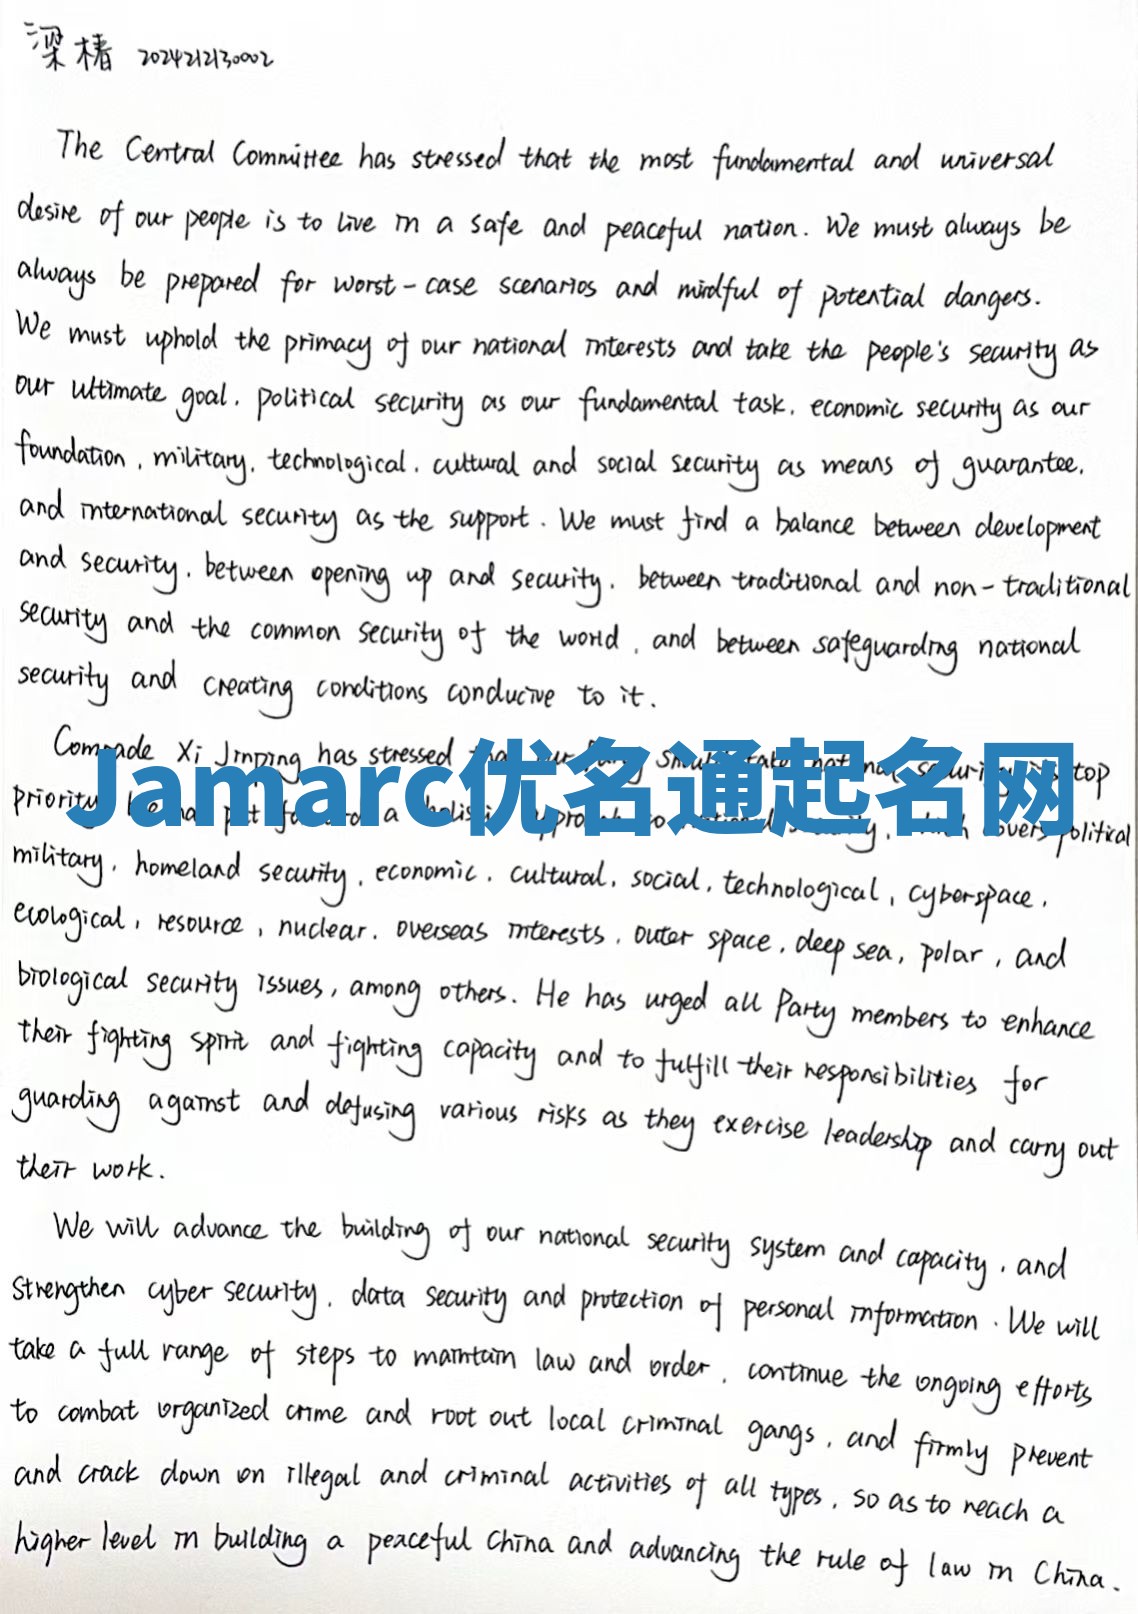 梁椿 2024212130002
The Central Committee has stressed that the most fundamental and universal
desire of our people is to live in a safe and peaceful nation. We must always be
always be prepared for worst-case scenarios and mindful of potential dangers.
We must uphold the primacy of our national interests and take the people's security as
our ultimate goal, political security as our fundamental task, economic security as our
foundation, military, technological, cultural and social security as means of guarantee,
and international security as the support. We must find a balance between development
and security, between opening up and security, between traditional and non-traditional
security and the common security of the world, and between safeguarding national
security and creating conditions conducive to it.
Comrade Xi Jinping has stressed top
priority a political
Jamarc优名通起名网
military, homeland security, economic, cultural, social, technological, cyberspace,
ecological, resource, nuclear, overseas interests, outer space, deep sea, polar, and
biological security issues, among others. He has urged all Party members to enhance
their fighting spirit and fighting capacity and to fulfill their responsibilities for
guarding against and defusing various risks as they exercise leadership and carry out
their work.
We will advance the building of our national security system and capacity, and
strengthen cyber security, data security and protection of personal information. We will
take a full range of steps to maintain law and order, continue the ongoing efforts
to combat organized crime and root out local criminal gangs, and firmly prevent
and crack down on illegal and criminal activities of all types, so as to reach a
higher level in building a peaceful China and advancing the rule of law in China.